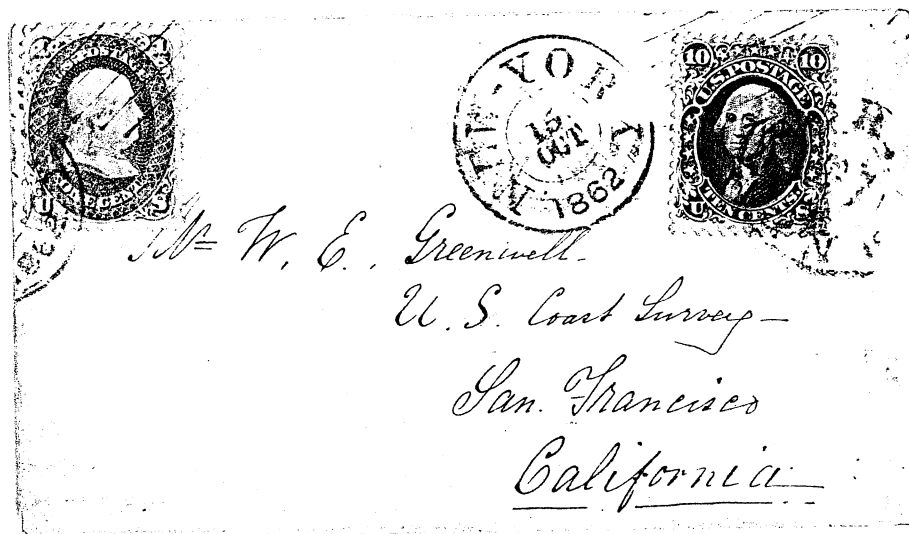 1 1
U.S. POSTAGE
ONE CENT
U S
NEW-YORK
15
OCT
1862
10 10
U.S. POSTAGE
TEN CENTS
U S
Mr W. E. Greenwell.
U. S. Coast Survey —
San. Francisco
California